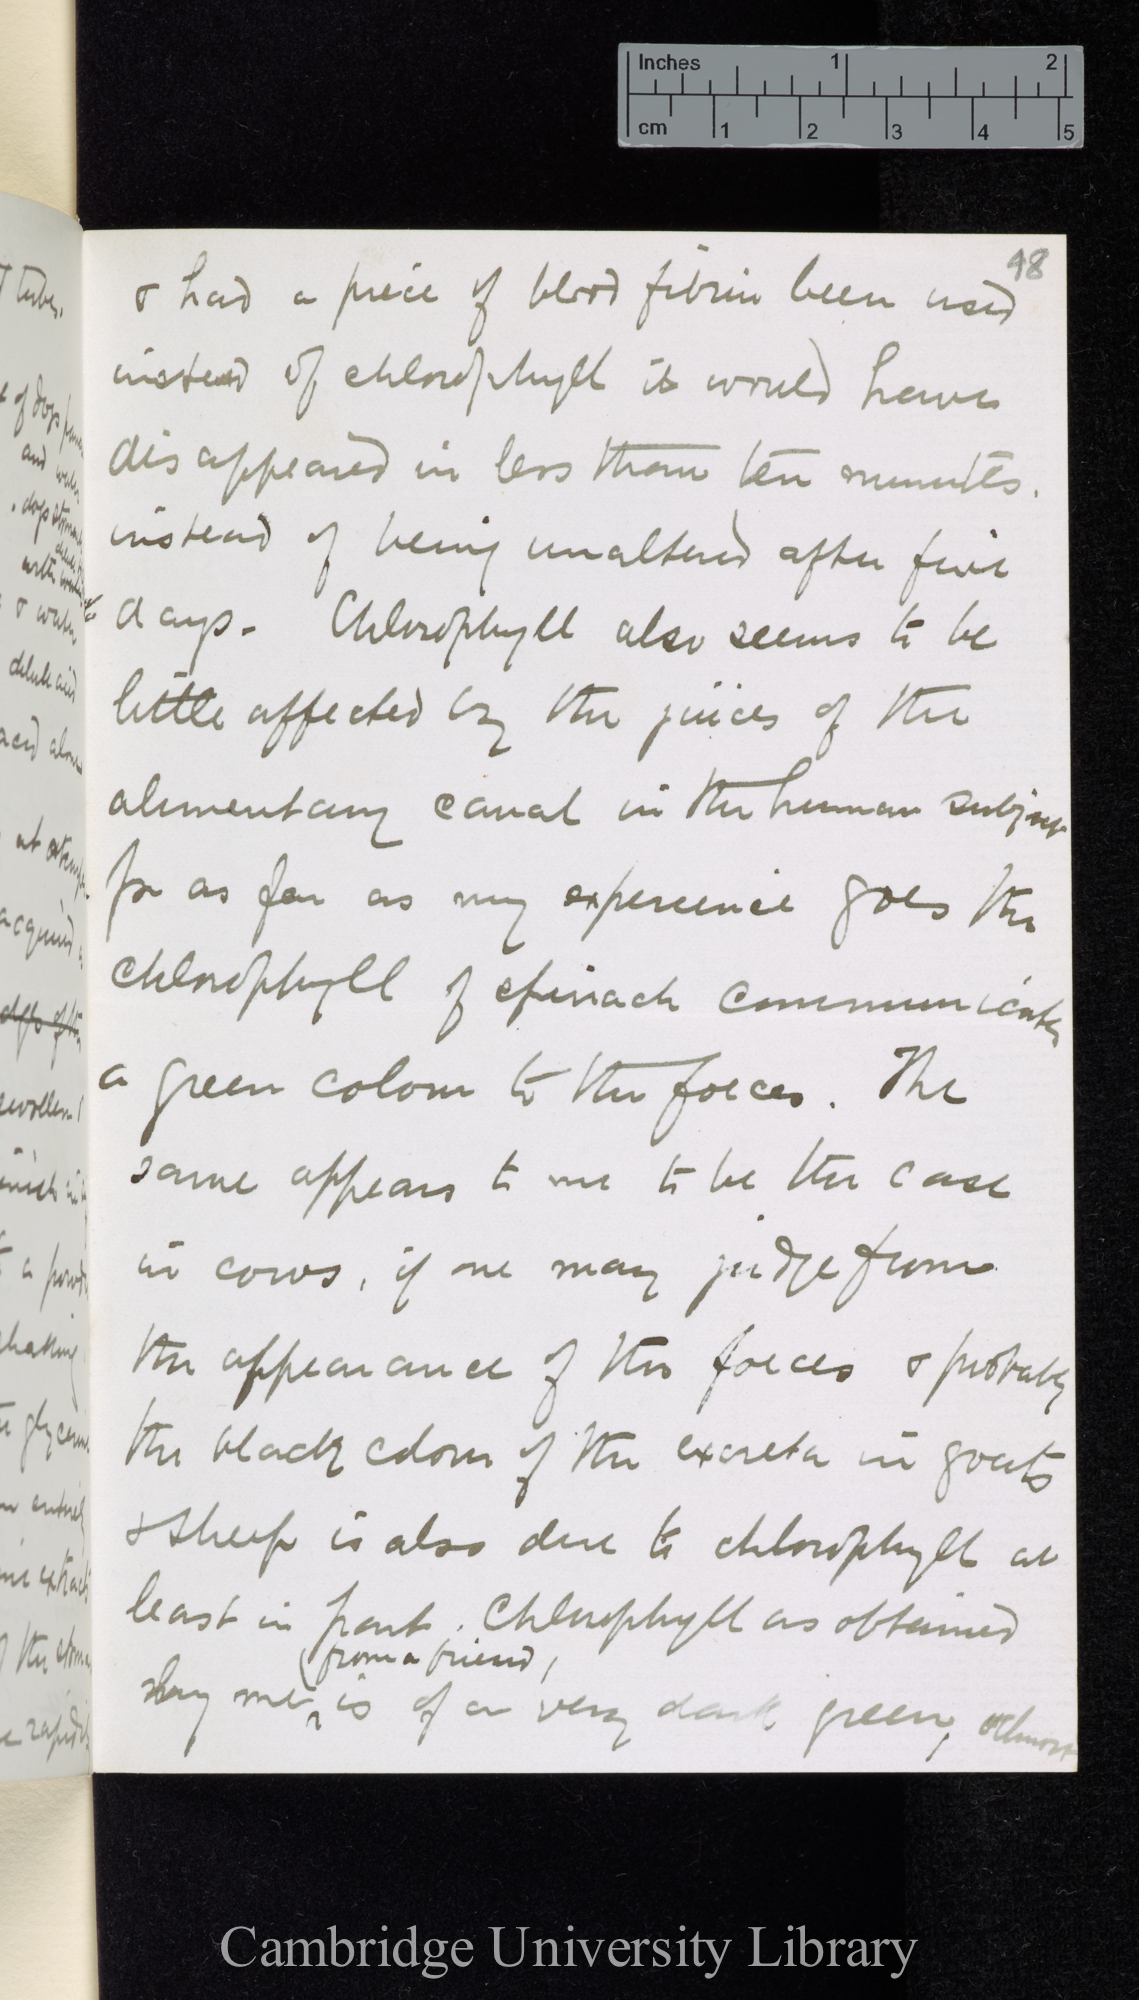 Inches 1 2
cm 1 2 3 4 5
48
& had a piece of blood fibrin been used
instead of chlorophyll it would have
disappeared in less than ten minutes.
instead of being unaltered after five
days. Chlorophyll also seems to be
little affected by the juices of the
alimentary canal in the human subject
for as far as my experience goes the
chlorophyll of spinach communicates
a green colour to the foeces. The
same appears to me to be the case
in cows, if one may judge from
the appearance of the foeces & probably
the black colour of the excreta in goats
& sheep is also due to chlorophyll at
least in part. Chlorophyll as obtained
from a friend,
by me is of a very dark green, almost
tubes.
of dogs
and water
. dogs stomach
& water
dilute acid
acid alone
acquired
swollen
a powder
shaking
glycerine
entirely
extract
the stomach
rapidly
Cambridge University Library